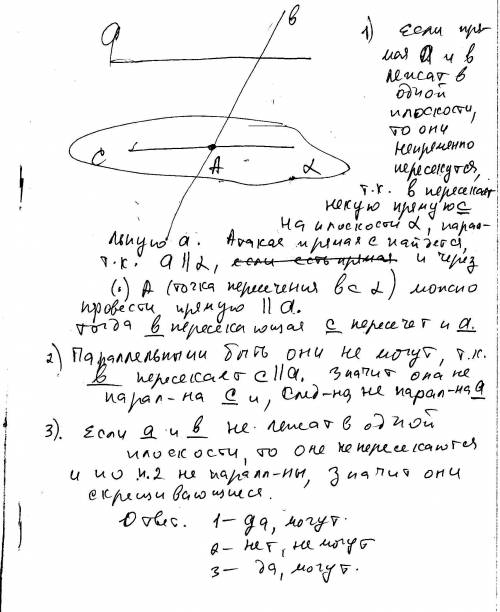 a
в
c
A
α
1) Если пря-
мая а и в
лежат в
одной
плоскости,
то они
непременно
пересекутся,
т.к. в пересекает
некую прямую с
на плоскости α, парал-
льную а. Атакая прямая с найдется,
т.к. а || α, если есть прямая и через
(·) А (точка пересечения в с α) можно
провести прямую || а.
тогда в пересекающая с пересечет и а.
2) Параллельными быть они не могут, т.к.
в пересекает с || а. Значит она не
парал-на с и, след-на не парал-на а
3). Если а и в не лежат в одной
плоскости, то оне непересекаются
и по п.2 не паралл-ны, значит они
скрещивающиеся.
Ответ. 1 – да, могут.
2 – нет, не могут
3 – да, могут.